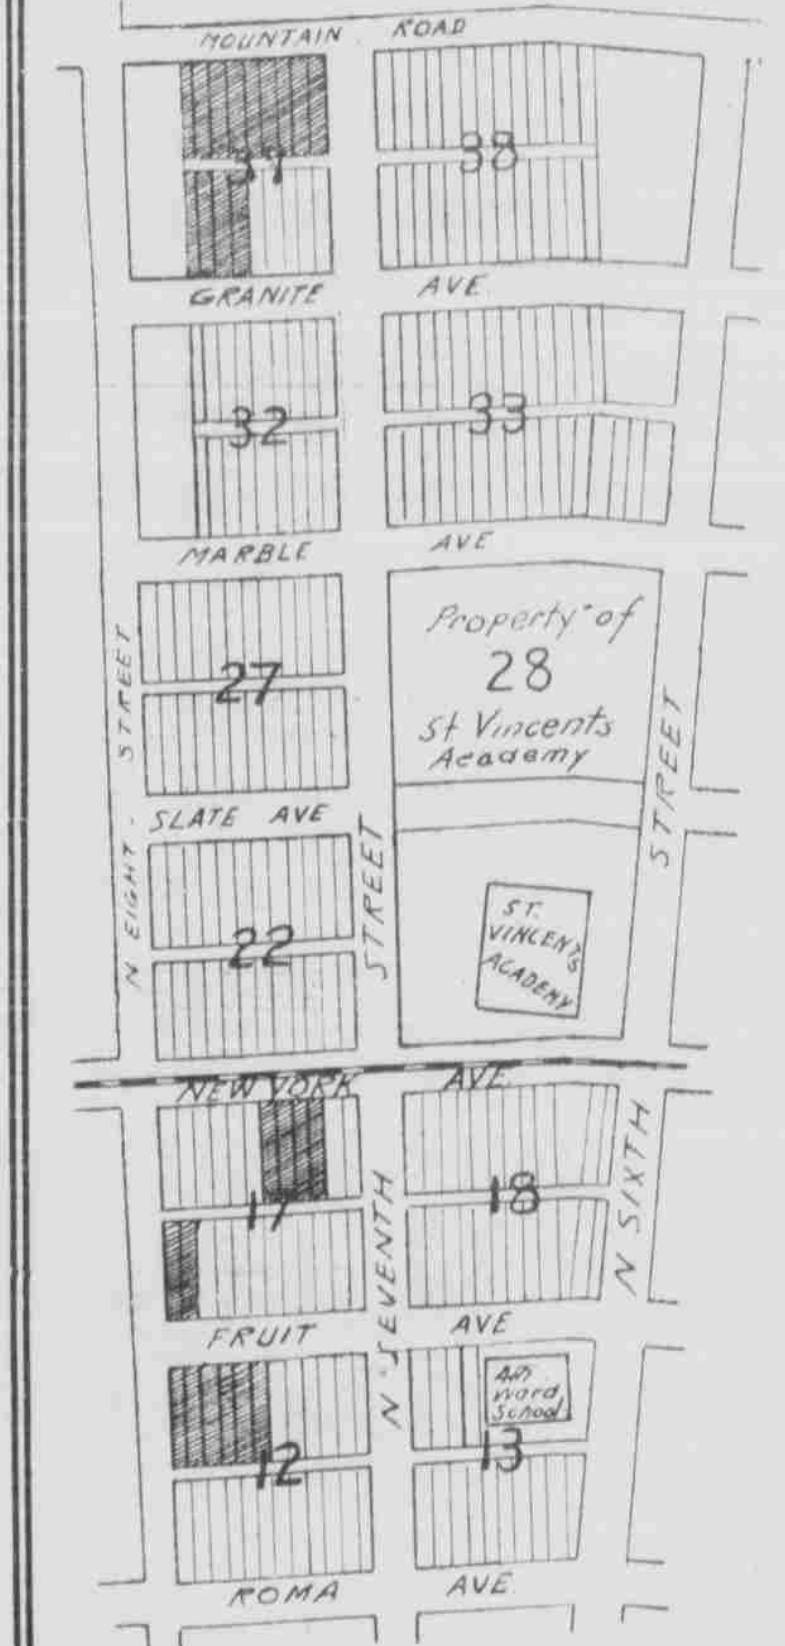 MOUNTAIN ROAD
37
38
GRANITE AVE
32
33
MARBLE AVE
27
Property of
28
St Vincents
Academy
N EIGHT. STREET
SLATE AVE
STREET
STREET
22
ST.
VINCENTS
ACADEMY
NEW YORK AVE
17
18
N SIXTH
N SEVENTH
FRUIT AVE
Ward
School
12
13
ROMA AVE.